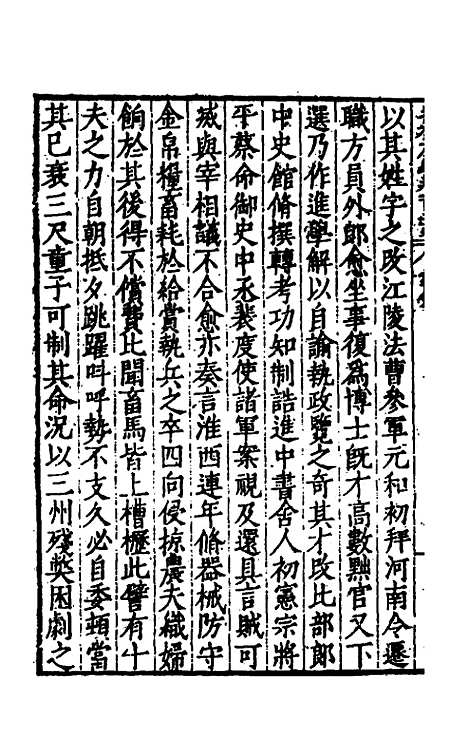 以其姓字之改江陵法曹參軍元和初拜河南令遷
職方員外郎愈坐事復爲博士既才高數黜官又下
選乃作進學解以自諭執政覽之奇其才改比部郎
中史館脩撰轉考功知制誥進中書舍人初憲宗將
平蔡命御史中丞裴度使諸軍案視及還具言賊可
滅與宰相議不合愈亦奏言淮西連年脩器械防守
金帛糧畜耗於給賞執兵之卒四向侵掠農夫織婦
餉於其後得不償費比聞畜馬皆上槽櫪此譬有十
夫之力自朝抵夕跳躍叫呼勢不支久必自委頓當
其已衰三尺童子可制其命況以三州殘獘困劇之